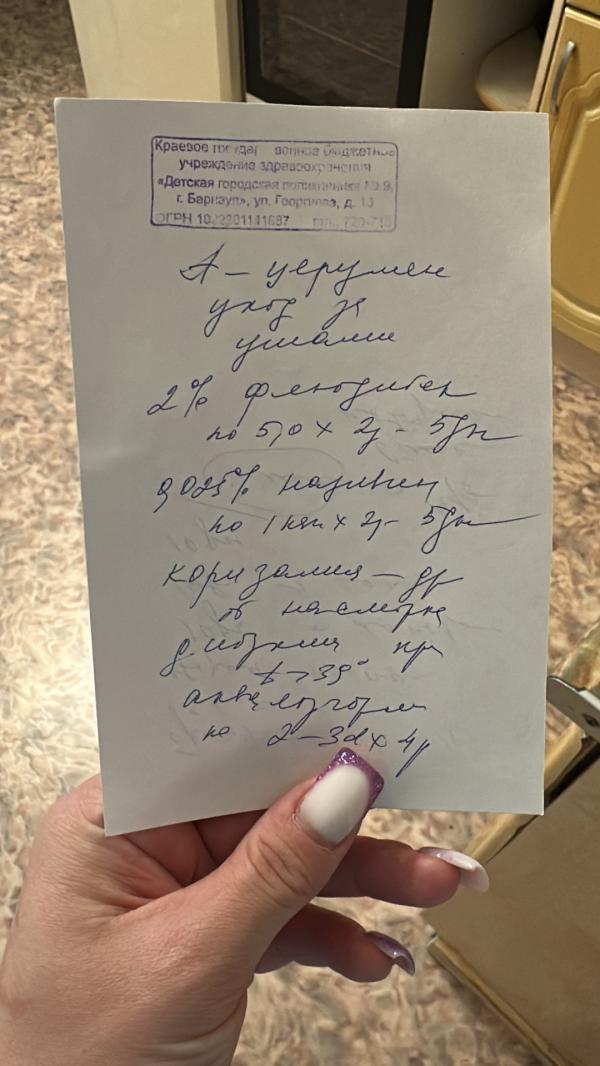 Краевое государственное бюджетное
учреждение здравоохранения
«Детская городская поликлиника № 9,
г. Барнаул», ул. Георгиева, д. 13
ОГРН 1022201141687
А – церумен
уход за
ушами
2% флюдитек
по 5,0 х 2р – 5дн
0,025% називин
по 1 кап х 2р – 5дн
коризалия – др
от насморка
при
t > 39°
аква
по 2 – 3d х 4р